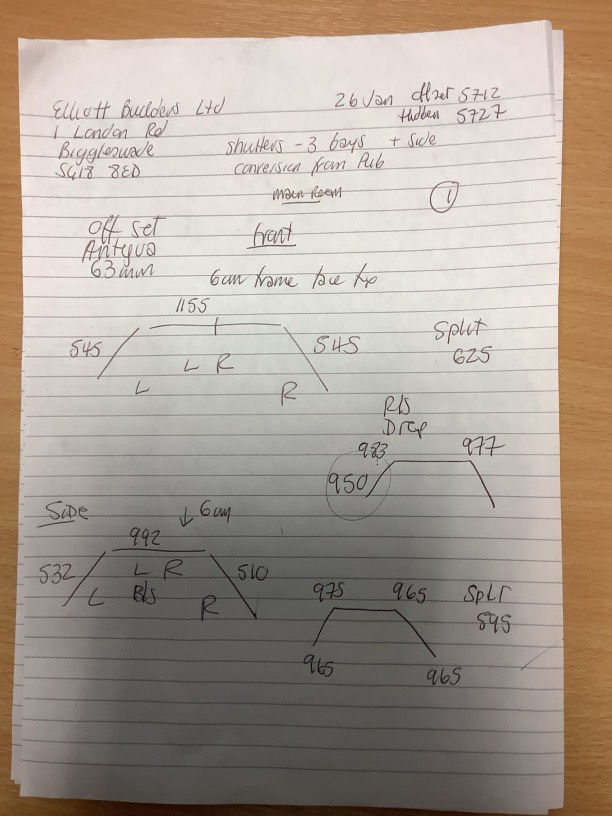 Elliott Builders Ltd
1 London Rd
Biggleswade
SG18 8ED
26 Jan offset 5712
Hidden 5727
shutters - 3 bays + side
conversion from Pub
main room
1
Off set
Antigua
63mm
front
6cm frame face
1155
545
545
L
L R
R
Split
625
R/s
Drop
983
977
950
Side
↓ 6cm
992
532
510
L R
L
B/s
R
975
965
965
965
Split
595